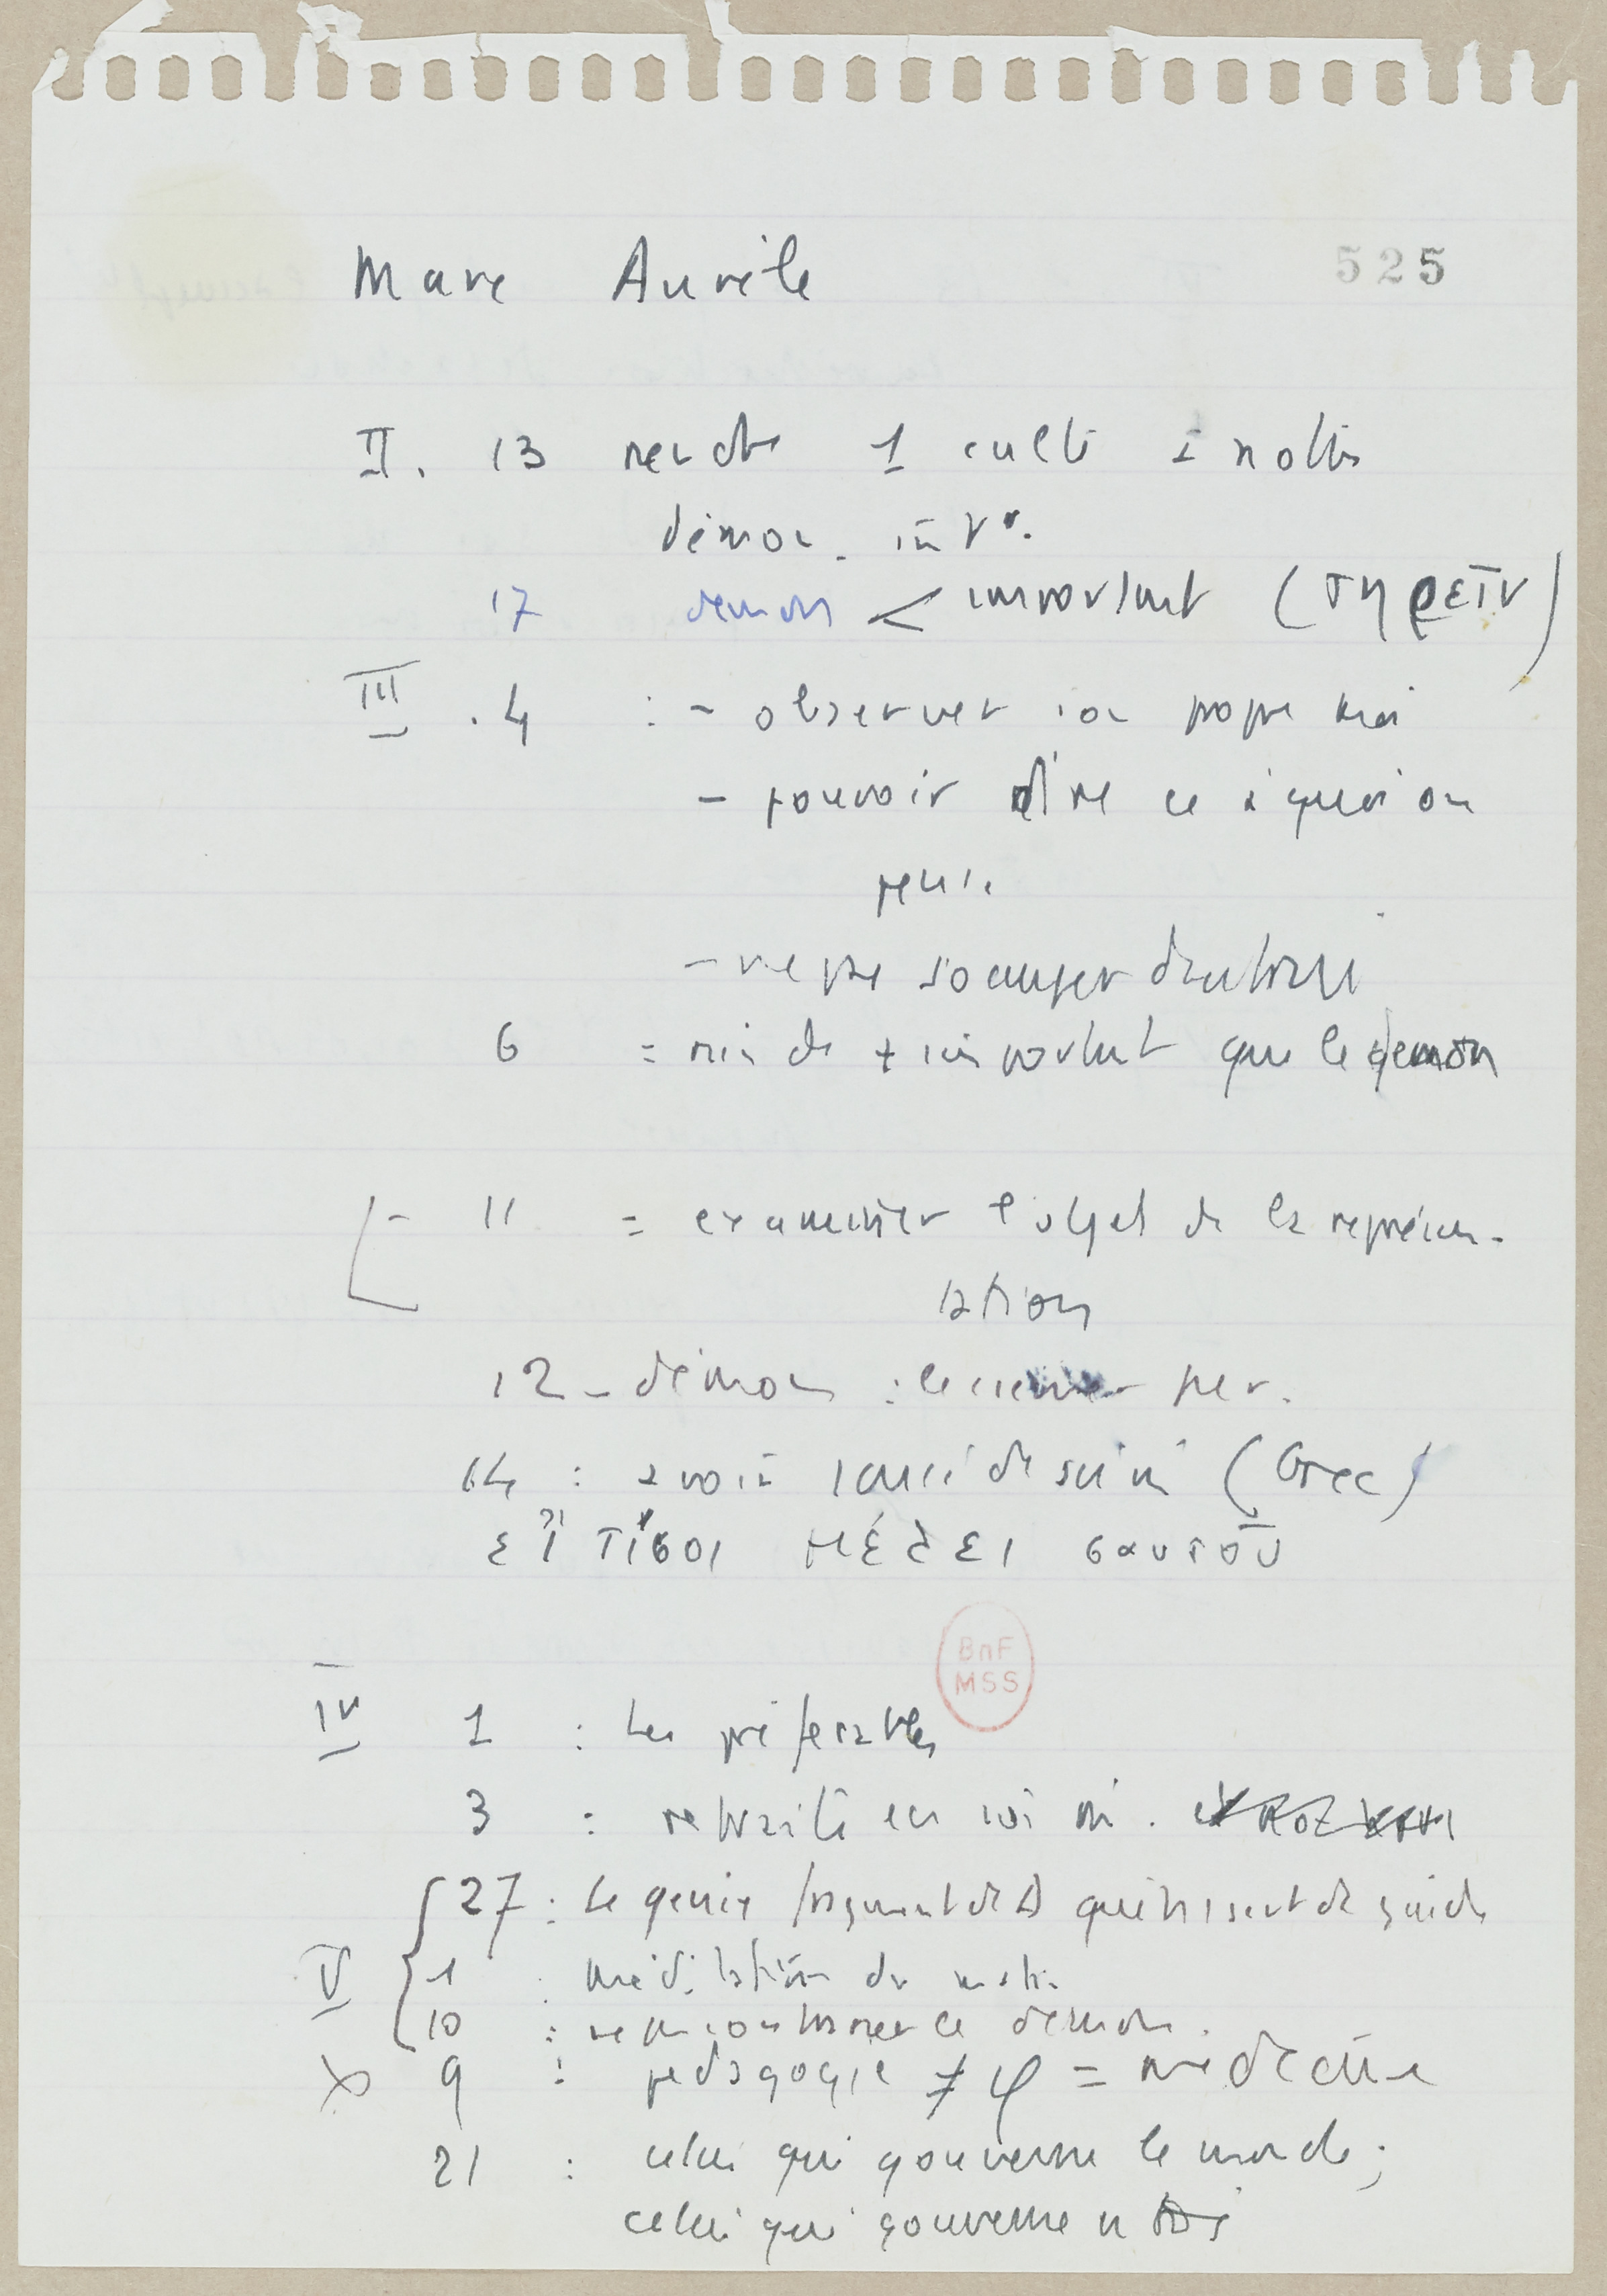 Marc Aurèle
525
II. 13 rendre 1 culte à notre
démon. intr.
17 demon < important (τηρεῖν)
III . 4 : - observer son propre moi
- pouvoir dire ce à quoi on
pense
- ne pas s'occuper d'autrui
6 = rien de + important que le demon
- 11 = examiner l'objet de la représen-
tation
12 - démon :
14 : avoir souci de soi m (Grec)
εἴ τί σοι μέλει σαυτοῦ
BnF
MSS
IV 1 : Les préférables
3 : retraite en soi m.
27 : Le génie fragment de D qui ns sert de guide
V 1 : méditation du matin
10 : ne pas contrarier ce démon.
9 : pedagogie ≠ φ = médecine
21 : celui qui gouverne le monde ;
celui qui gouverne en toi